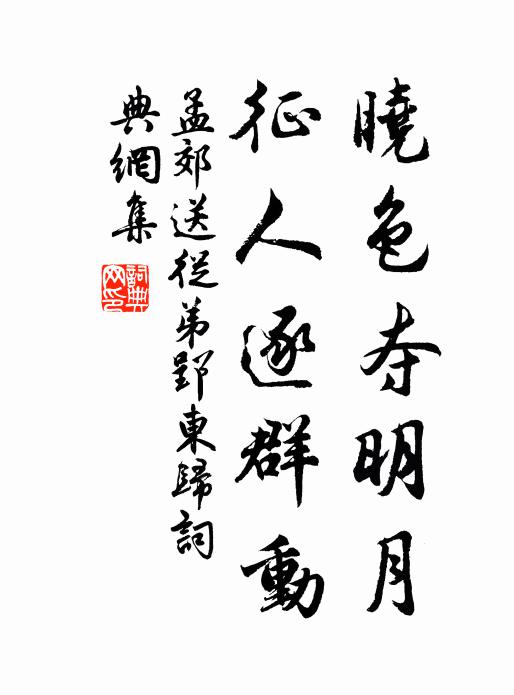 曉色夺明月
征人逐群動
孟郊送從弟郢東歸詞
典網集
詞典
网印